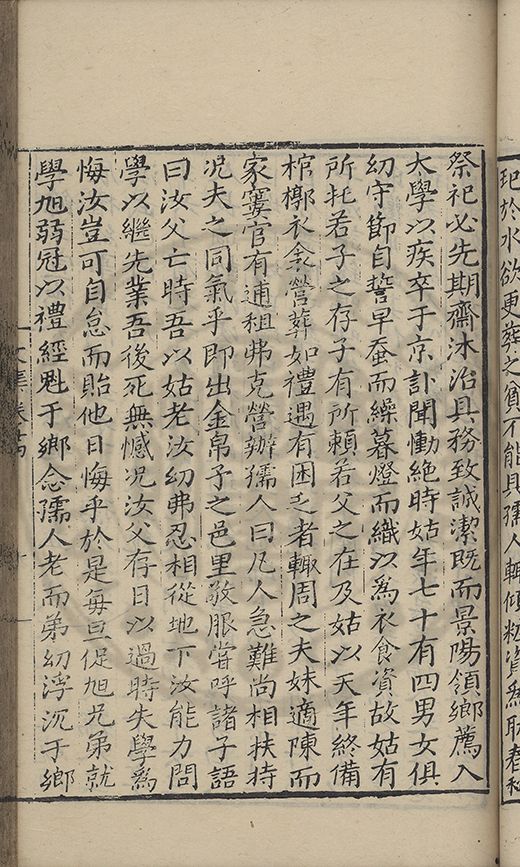 圯於水欲更葬之貧不能具孺人輒傾粧資為
祭祀必先期齋沐治具務致誠潔既而景陽領鄉薦入
大學以疾卒于京訃聞慟絶時姑年七十有四男女俱
幼守節自誓早蚕而繰暮燈而織以爲衣食資故姑有
所托若子之存子有所賴若父之在及姑以天年終備
棺槨衣衾營葬如禮遇有困乏者輙周之夫妹適陳而
家寠官有逋租弗克營辦孺人曰凡人急難尚相扶持
况夫之同氣乎即出金帛予之邑里敬服嘗呼諸子語
曰汝父亡時吾以姑老汝幼弗忍相從地下汝能力問
學以繼先業吾後死無憾况汝父存日以過時失學爲
悔汝豈可自怠而貽他日悔乎於是每旦促旭兄弟就
學旭弱冠以禮經魁于鄉念孺人老而弟幼浮沉于鄉
文集卷